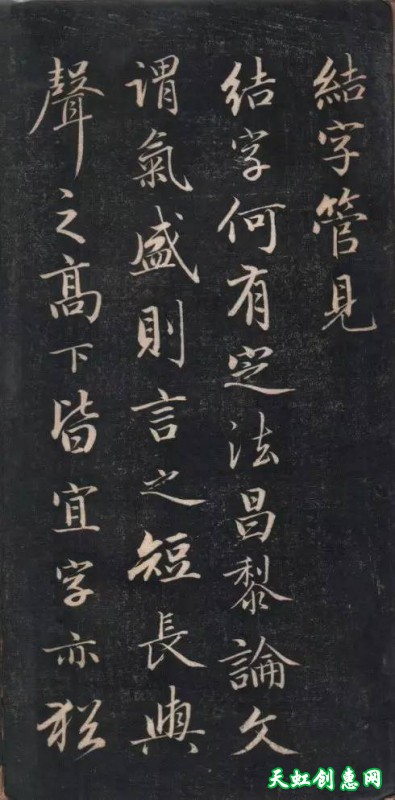 結字管見
結字何有定法昌黎論文
謂氣盛則言之短長與
聲之髙下皆宜字亦猶
天虹创惠网